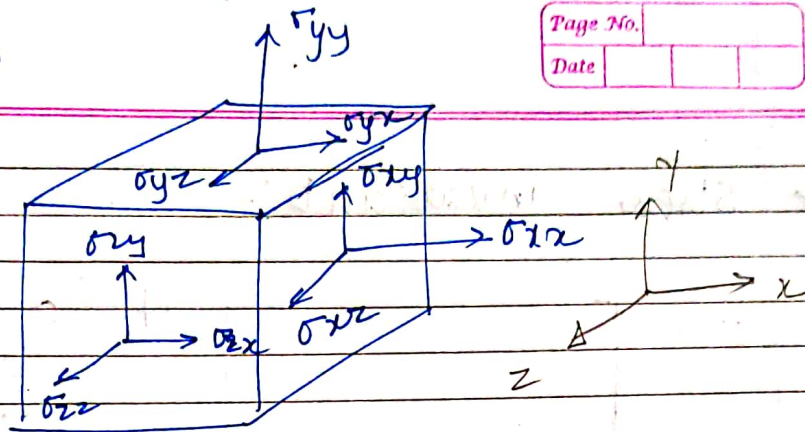 Page No.
Date
σyy
σyx
σyz
σxy
σxx
σxz
σzy
σzx
σzz
Y
x
Z